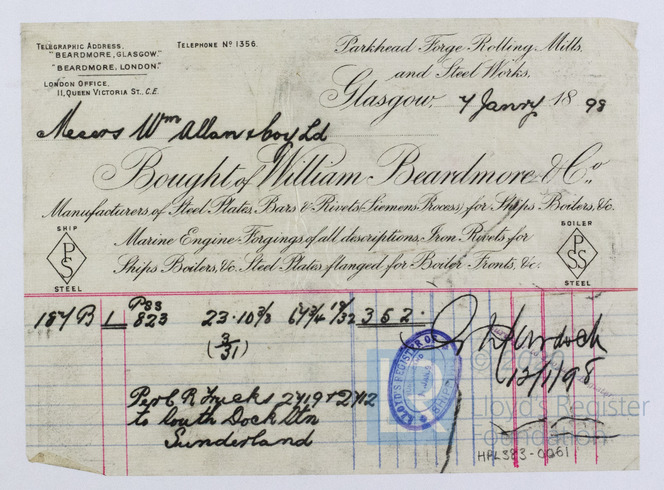 TELEGRAPHIC ADDRESS, TELEPHONE Nº 1356.
"BEARDMORE, GLASGOW."
"BEARDMORE, LONDON."
LONDON OFFICE,
11, QUEEN VICTORIA ST., C.E.
Parkhead Forge Rolling Mills,
and Steel Works,
Glasgow, 7 Janry 1898
Messrs Wm Allan & Coy Ld
Bought of William Beardmore & Co.,
Manufacturers of Steel Plates, Bars & Rivets (Siemens Process) for Ships Boilers, &c.
Marine Engine Forgings of all descriptions, Iron Rivets for
Ships Boilers, &c. Steel Plates flanged for Boiler Fronts, &c.
SHIP
PS
STEEL
BOILER
PSS
STEEL
187 B 1 PSS 823 23·10 3/8 67 3/4 19/32 3 5 2 ·
(3/31)
J Murdoch
12/1/98
LLOYD'S REGISTER OF
Per C R Trucks 2719 + 2712
to South Dock Stn
Sunderland
Lloyd's Register
Foundation
HPL383-0261